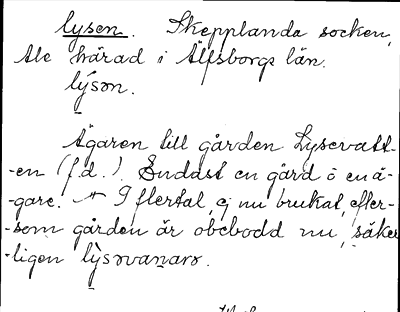 lysen. Skepplanda socken,
Ale härad i Älfsborgs län.
lýsən.
Ägaren till gården Lysevatt-
-en (f.d.). Endast en gård o en ä-
-gare. I flertal, ej nu brukat, efter-
-som gården är obebodd nu, säker-
-ligen lỳsəvanarə.